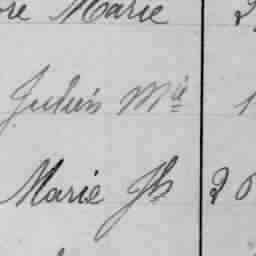 re Marie 2
Julien Mie 1
Marie Jh 20